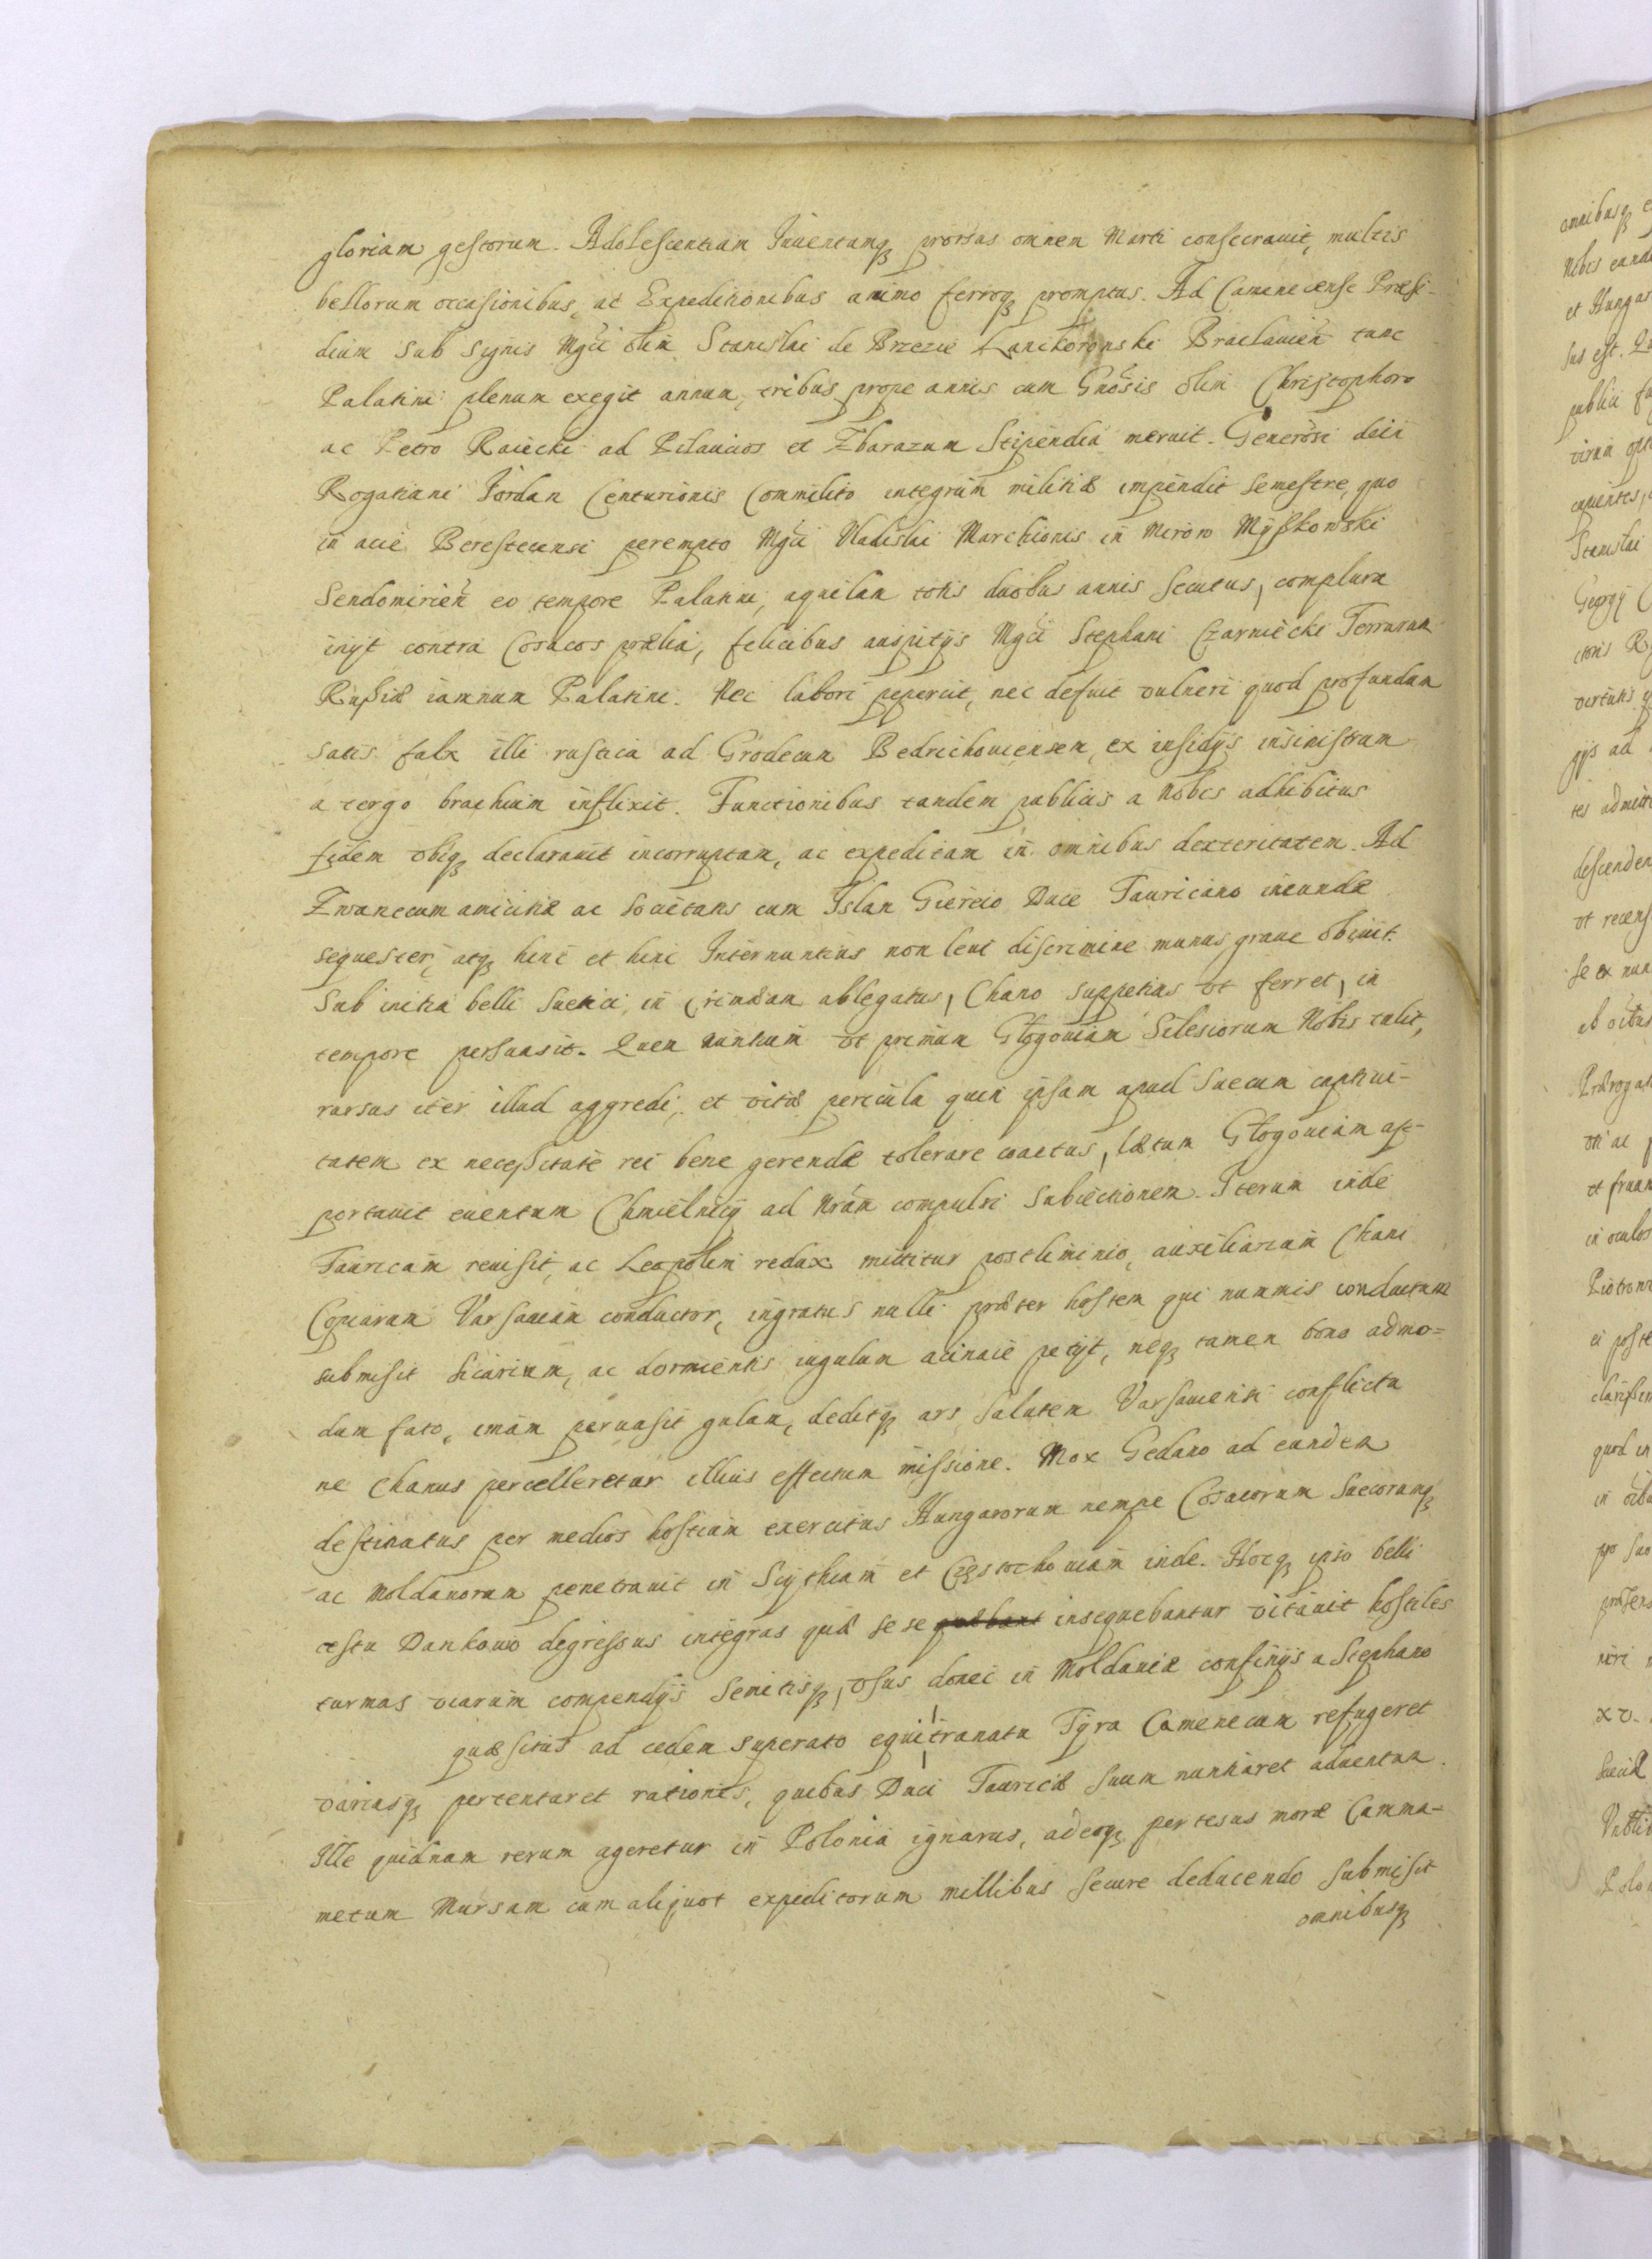 gloriam gestorum. Adolescentiam Iuuentamq; prorsus omnem Marti consecrauit, multis
bellorum occasionibus, ac Expeditionibus animo ferroq; promptus. Ad Camenecense Præsi-
dium sub signis Mgci olim Stanislai de Brzezie Lanckoronski Braclauien tunc
Palatini plenum exegit annum, tribus prope annis cum Gnosis olim Christophoro
ac Petro Raiecki ad Pilauicios et Zbarazum Stipendia meruit. Generosi dein
Rogatiani Iordan Centurionis Commilito integrum militiæ impendit semestre, quo
in acie Berestecensi perempto Mgci Vladislai Marchionis in Mirow Myßkowski
Sendomirien eo tempore Palatini, aquilam totis duobus annis secutus, complura
inijt contra Cosacos prælia, felicibus auspitijs Mgci Stephani Czarniecki Terrarum
Rußiæ iamnum Palatini. Nec labori pepercit, nec defuit vulneri quod profundum
satis falx illi rustica ad Grodecum Bedrichouiensem, ex insidijs in sinistrum
a tergo brachium inflixit. Functionibus tandem publicis a Nobis adhibitus
fidem vbiq; declarauit incorruptam, ac expeditam in omnibus dexteritatem. Ad
Zwanecum amicitiæ ac societatis cum Islan Giereio Duce Tauricano ineundæ
sequester, atq; hinc et hinc Internuntius non leui discrimine munus graue obiuit.
Sub initia belli Suetici in Crimæam ablegatus, Chano suppetias vt ferret, in
tempore persuasit. Quem nuntium vt primum Glogouiam Silesiorum Nobis tulit,
rursus iter illud aggredi, et vitæ pericula quin ipsam apud Suecum captiui-
tatem ex neceßitate rei bene gerendæ tolerare coactus, lætum Glogouiam ap-
portauit euentum Chmielnicij ad Nram compulsi subiectionem. Iterum inde
Tauricam reuisit, ac Leopolim redux mittitur postliminio, auxiliariam Chani
Copiarum Varsauiam conductor, ingratus nulli præter hostem qui nummis conductum
submisit sicarium, ac dormientis iugulum acinace petijt, neq; tamen bono admo=
dum fato, imam peruasit gulam, deditq; ars salutem Varsauiensi conflictu
ne Chanus percelleretur illius effectum missione. Mox Gedano ad eundem
destinatus per medios hostium exercitus Hungarorum nempe Cosacorum Suecorumq;
ac Moldauorum penetrauit in Scythiam et Częstochouiam inde. Hocq; ipso belli
æstu Dankowo degressus integras quæ sese insequebantur vitauit hostiles
turmas viarum compendijs semitisq; vsus donec in Moldauiæ confinijs a Stephano
quæsitus ad cedem superato equi tranatu Tyra Camenecum refugeret
variasq; pertentaret rationes, quibus Duci Tauricæ suum nuntiaret aduentum.
Ille quidnam rerum ageretur in Polonia ignarus, adeoq; pertesus moræ Camma-
metum Mursam cum aliquot expeditorum millibus secure deducendo submisit
omnibusq;